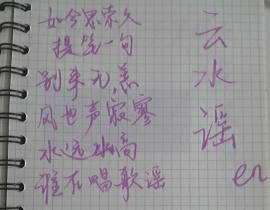 如今

提笔一句
别来无恙
风也声寂寥
水远山高
谁在唱歌谣
云水谣
en